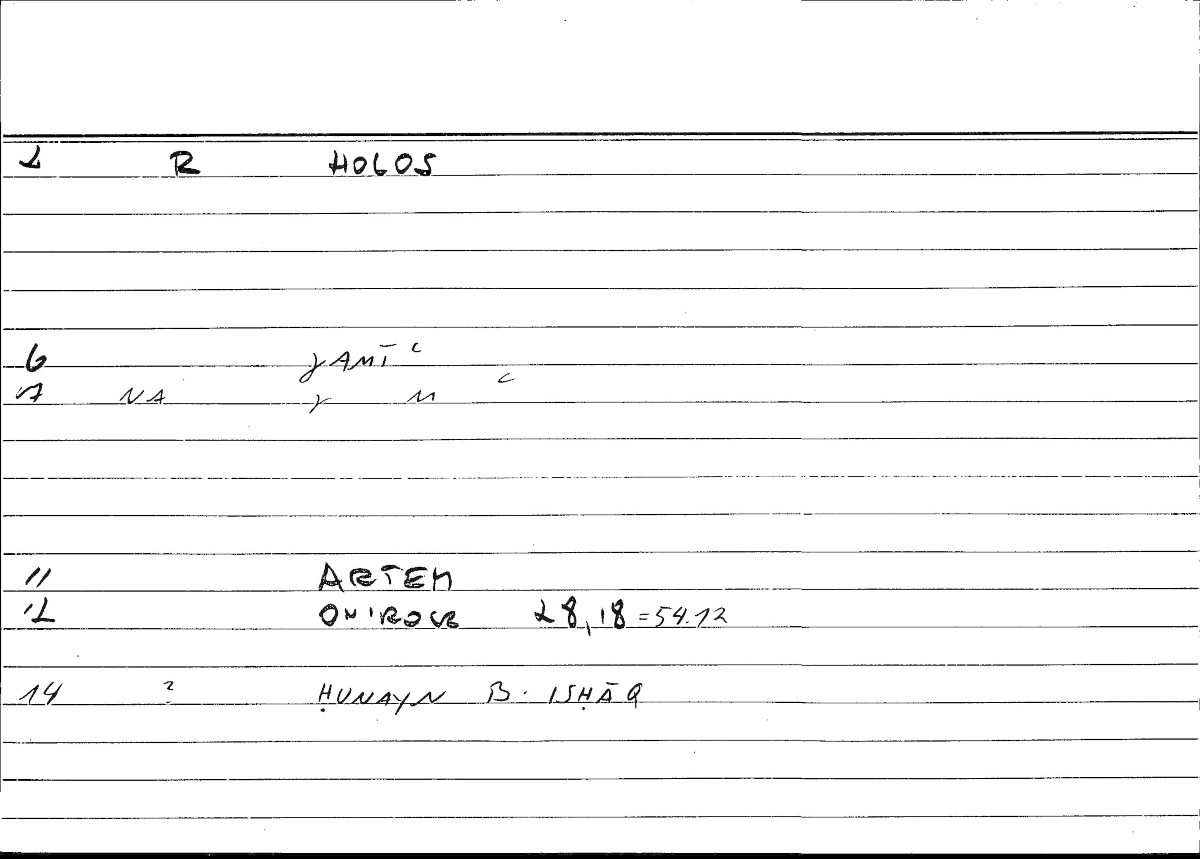 2 R HOLOS
6 ǦAMĪʿ
7 NA Ǧ M ʿ
11 ARTEM
12 ONIROCR 28,18 =54.12
14 ? ḤUNAYN B. ISḤĀQ